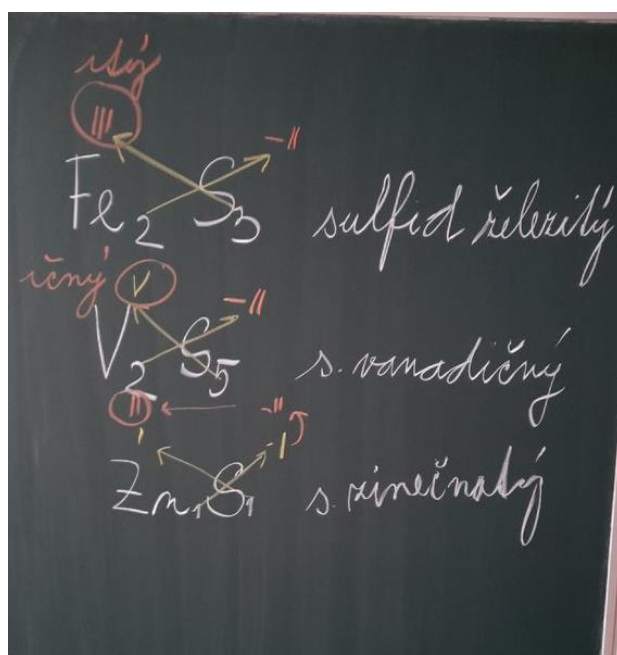 itý
III -II
Fe2 S3 sulfid železitý
ičný V -II
V2 S5 s. vanadičný
II -II
I -I
Zn1 S1 s. zinečnatý